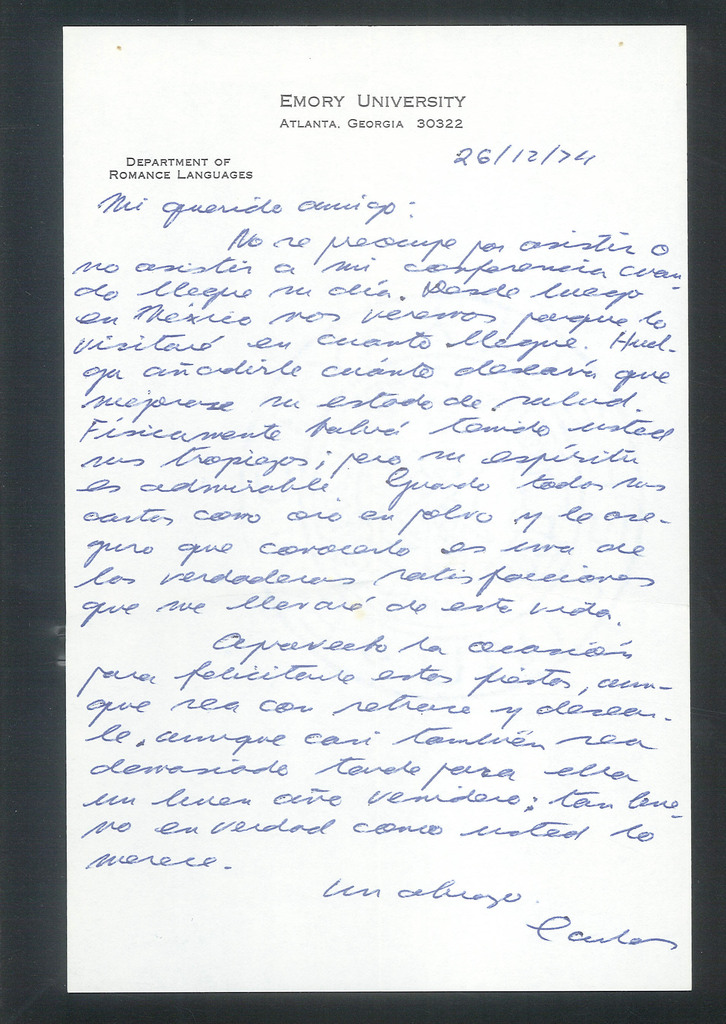 EMORY UNIVERSITY
ATLANTA, GEORGIA 30322
26/12/74
DEPARTMENT OF
ROMANCE LANGUAGES
Mi querido amigo:
No se preocupe por asistir o
no asistir a mi conferencia cuan-
do llegue su día. Desde luego
en México nos veremos porque lo
visitaré en cuanto llegue. Huel-
ga añadirle cuánto desearía que
mejorase su estado de salud.
Físicamente habrá tenido usted
sus tropiezos; pero su espíritu
es admirable. Guardo todas sus
cartas como oro en polvo y le ase-
guro que conocerlo es una de
las verdaderas satisfacciones
que me llevaré de esta vida.
Aprovecho la ocasión
para felicitarle estas fiestas, aun-
que sea con retraso y desear-
le, aunque casi también sea
demasiado tarde para ello
un buen año venidero; tan bue-
no en verdad como usted lo
merece.
Un abrazo.
Carlos